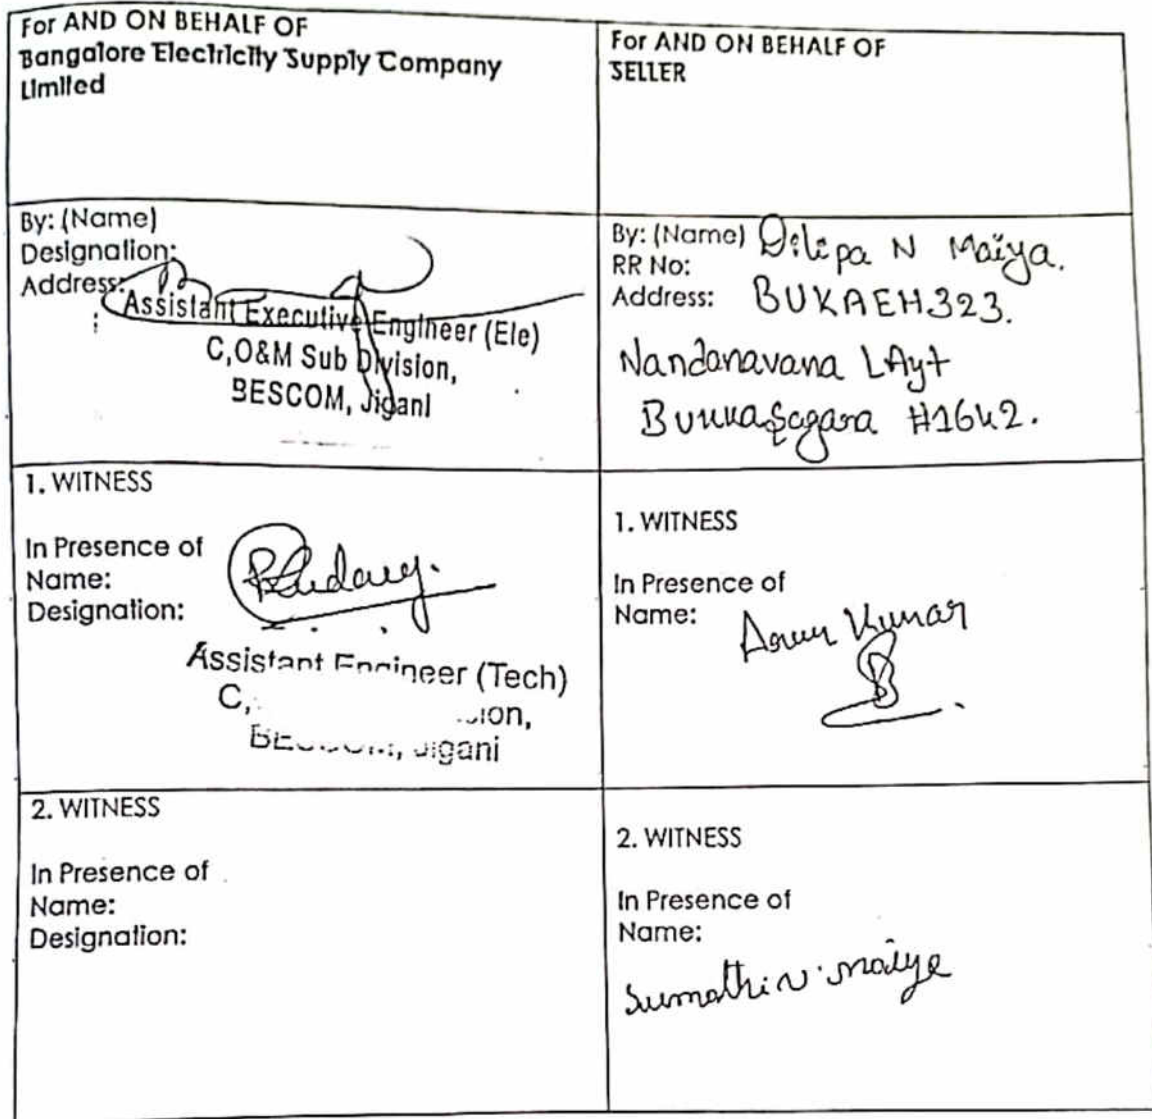 For AND ON BEHALF OF
Bangalore Electricity Supply Company
Limited
For AND ON BEHALF OF
SELLER
By: (Name)
Designation:
Address:
Assistant Executive Engineer (Ele)
C,O&M Sub Division,
BESCOM, Jigani
By: (Name) Dilipa N Maiya.
RR No:
Address: BUKAEH323.
Nandanavana LAyt
Bukkasagara #1642.
1. WITNESS
In Presence of
Name:
Designation:
Assistant Engineer (Tech)
C,
BESCOM, Jigani
1. WITNESS
In Presence of
Name: Arun Kumar
2. WITNESS
In Presence of
Name:
Designation:
2. WITNESS
In Presence of
Name:
Sumathi N Maiya